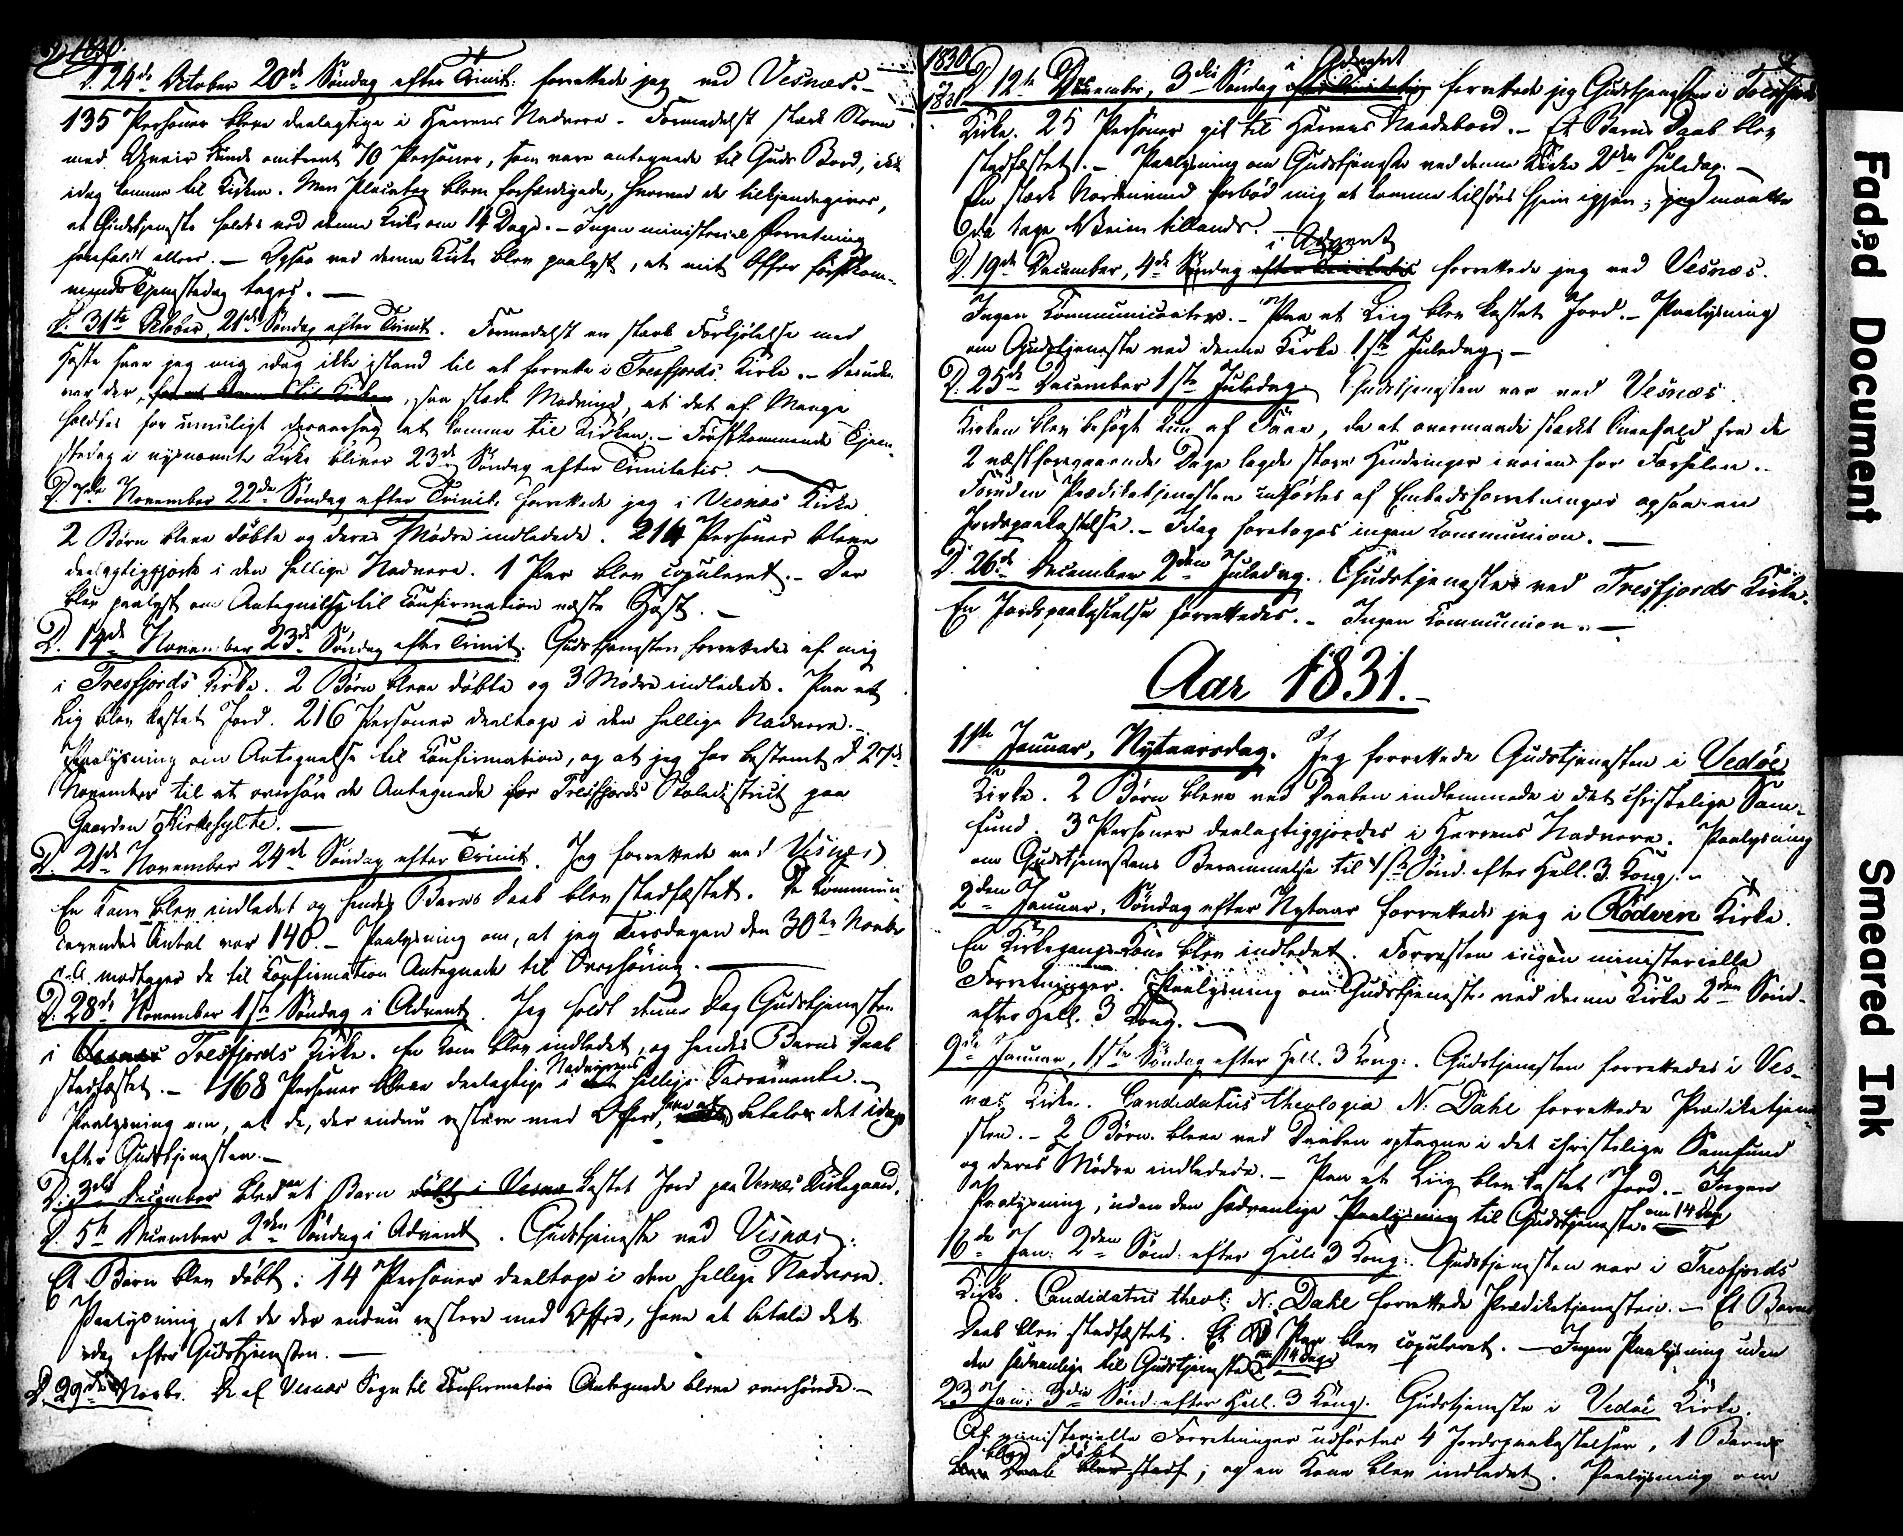 1830.
D. 24de October 20de Søndag efter Trinit: forrettede jeg ved Vesnæs.–
135 Personer bleve deelagtige i Herrens Nadvere. – Formedelst stærk Storm
med Uveir kunde omtrent 70 Personer, som vare antegnede til Guds Bord, ikke
idag komme til Kirken. Men Placater bleve forfærdigede, hvorved det tilkjendegives,
at Gudstjeneste holdes ved denne Kirke om 14 Dage. – Ingen ministeriel Forretning
forefaldt ellers. – Ogsaa ved denne Kirke blev paalyst, at mit Offer førstkom-
mende Tjenestedag tages. –
D. 31te October, 21de Søndag efter Trinit. Formedelst en stærk Forkjølelse med
Hoste saae jeg mig idag ikke istand til at forrette i Tresfjords Kirke. – Desuden
var der, saa stærk Modvind, at det af Mange
holdtes for umuligt at komme til Kirken. – Førstkommende Tjene-
stedag i nysnævnte Kirke bliver 23de Søndag efter Trinitatis. –
D. 7de November 22de Søndag efter Trinit. forrettede jeg i Vesnæs Kirke
2 Børn bleve døbte og deres Mødre indledede. 214 Personer bleve
deelagtiggjorte i den hellige Nadvere. 1 Par blev copuleret. – Der
blev paalyst om Antegnelse til Confirmation næste Høst. –
D. 14de November 23de Søndag efter Trinit. Gudstjenesten forrettedes af mig
i Tresfjords Kirke. 2 Børn bleve døbte og 3 Mødre indledede. Paa et
Lig blev kastet Jord. 216 Personer deeltoge i den hellige Nadvere. –
Paalysning om Antegnelse til Confirmation, og at jeg har bestemt d. 27de
November til at overhøre de Antegnede for Tresfjords Skoledistrict paa
Gaarden Kirkesylte. –
D. 21de November 24de Søndag efter Trinit. Jeg forrettede ved Vesnæs.
En Kone blev indledet og hendes Barns Daab blev stadfæstet. De Kommuni-
cerendes Antal var 140. – Paalysning om, at jeg Tirsdagen den 30te Novbr
d. A. modtager de til Confirmation Antegnede til Overhøring. –
D. 28de November 1ste Søndag i Advent. Jeg holdt denne Dag Gudstjenesten
i Tresfjords Kirke. En Kone blev indledet, og hendes Barns Daab
stadfæstet. – 168 Personer bleve deelagtige i Nadverens hellige Sacramente. –
Paalysning om, at de, der endnu restere med Offer, have at betale det idag
efter Gudstjenesten. –
D. 3die December blev paa et Barn døbt i Vesnæs kastet Jord paa Vesnæs Kirkegaard.
D. 5te December 2den Søndag i Advent. Gudstjeneste ved Vesnæs.
Et Barn blev døbt. 14 Personer deeltoge i den hellige Nadvere.
Paalysning, at de der endnu restere med Offer, have at betale det
idag efter Gudstjenesten. –
D. 29de Novbr. De af Vesnæs Sogn til Confirmation Antegnede bleve overhørede. –
1830
1831
D. 12te December, 3die Søndag i Advent forrettede jeg Gudstjenesten i Tresfjords
Kirke. 25 Personer gik til Herrens Naadebord. – Et Barns Daab blev
stadfæstet. – Paalysning om Gudstjeneste ved denne Kirke 2den Juledag. –
En stærk Nordenvind forbød mig at komme tilsøes hjem igjen; jeg maatte
da tage Veien tillands.
D. 19de December, 4de Søndag i Advent forrettede jeg ved Vesnæs.
Ingen Communicanter. – Paa et Liig blev kastet Jord. – Paalysning
om Gudstjeneste ved denne Kirke 1ste Juledag. –
D. 25de December 1ste Juledag. Gudstjenesten var ved Vesnæs.
Kirken blev besøgt kun af Faae, da et overmaade stærkt Sneefald fra de
2 næstforegaaende Dage lagde store Hindringer iveien for Færselen. –
Foruden Prædiketjenesten udførtes af Embedsforretninger ogsaa en
Jordspaakastelse. – Idag foretoges ingen Communion. –
D. 26de December 2den Juledag. Gudstjeneste ved Tresfjords Kirke.
En Jordspaakastelse forrettedes. – Ingen Communion. –
Aar 1831.–
1ste Januar, Nytaarsdag. Jeg forrettede Gudstjenesten i Vedøe
Kirke. 2 Børn bleve ved Daaben indlemmede i det christelige Sam-
fund. 3 Personer deelagtiggjordes i Herrens Nadvere. Paalysning
om Gudstjenestens Berammelse til 1ste Sønd. efter Hell. 3 Kong. –
2den Januar, Søndag efter Nytaar forrettede jeg i Rødven Kirke.
En Kirkegangs-Kone blev indledet. Forresten ingen ministerielle
Forretninger. Paalysning om Gudstjeneste ved denne Kirke 2den Sønd.
efter Hell. 3 Kong. –
9de Januar, 1ste Søndag efter Hell. 3 Kong: Gudstjenesten forrettedes i Ves-
næs Kirke. Candidatus theologiæ N. Dahl forrettede Prædiketjene-
sten. – 2 Børn bleve ved Daaben optagne i det christelige Samfund
og deres Mødre indledede. – Paa et Liig blev kastet Jord. – Ingen
Paalysning, uden den sædvanlige Paalysning til Gudstjeneste om 14 Dage
16de Jan: 2den Sønd. efter Hell. 3 Kong: Gudstjenesten var i Tresfjords
Kirke. Candidatus theol: N. Dahl forrettede Prædiketjenesten. – Et Barns
Daab blev stadfæstet. Et Par blev copuleret. – Ingen Paalysning uden
den sædvanlige til Gudstjeneste om 14 Dage
23 Jan: 3die Sønd. efter Hell. 3 Kong. Gudstjeneste i Vedøe Kirke.
Af ministerielle Forretninger udførtes 4 Jordspaakastelser, 1 Barn
blev døbt; og en Kone blev indledet. Paalysning om
Faded Document
Smeared Ink